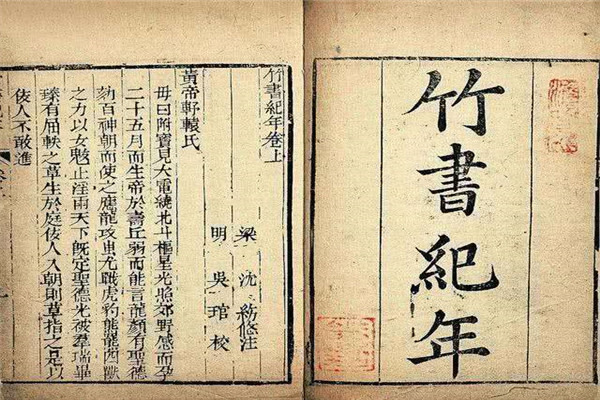 竹書紀年
竹書紀年卷上
梁 沈 約 注
明 吳 琯 校
黃帝軒轅氏
母曰附寶見大電繞北斗樞星光照郊野感而孕
二十五月而生帝於壽丘弱而能言龍顏有聖德
劾百神朝而使之應龍攻蚩尤戰虎豹熊羆四獸
之力以女魃止淫雨天下既定聖德光被羣瑞畢
臻有屈軼之草生於庭佞人入朝則草指之是以
佞人不敢進